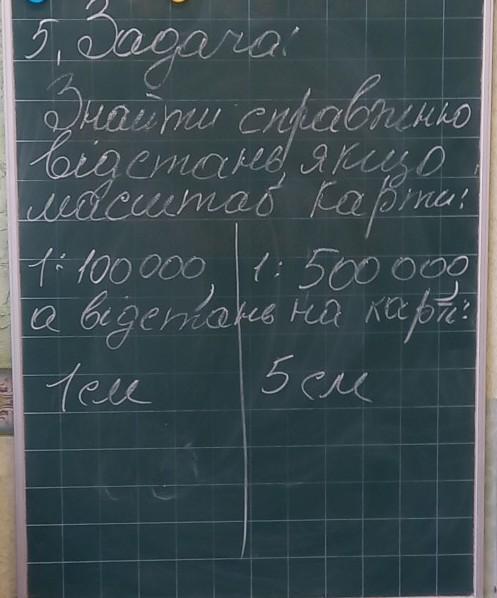 5. Задача:
Знайти справжню
відстань, якщо
масштаб карти:
1:100000, 1: 500 000,
а відстань на карті:
1см 5 см